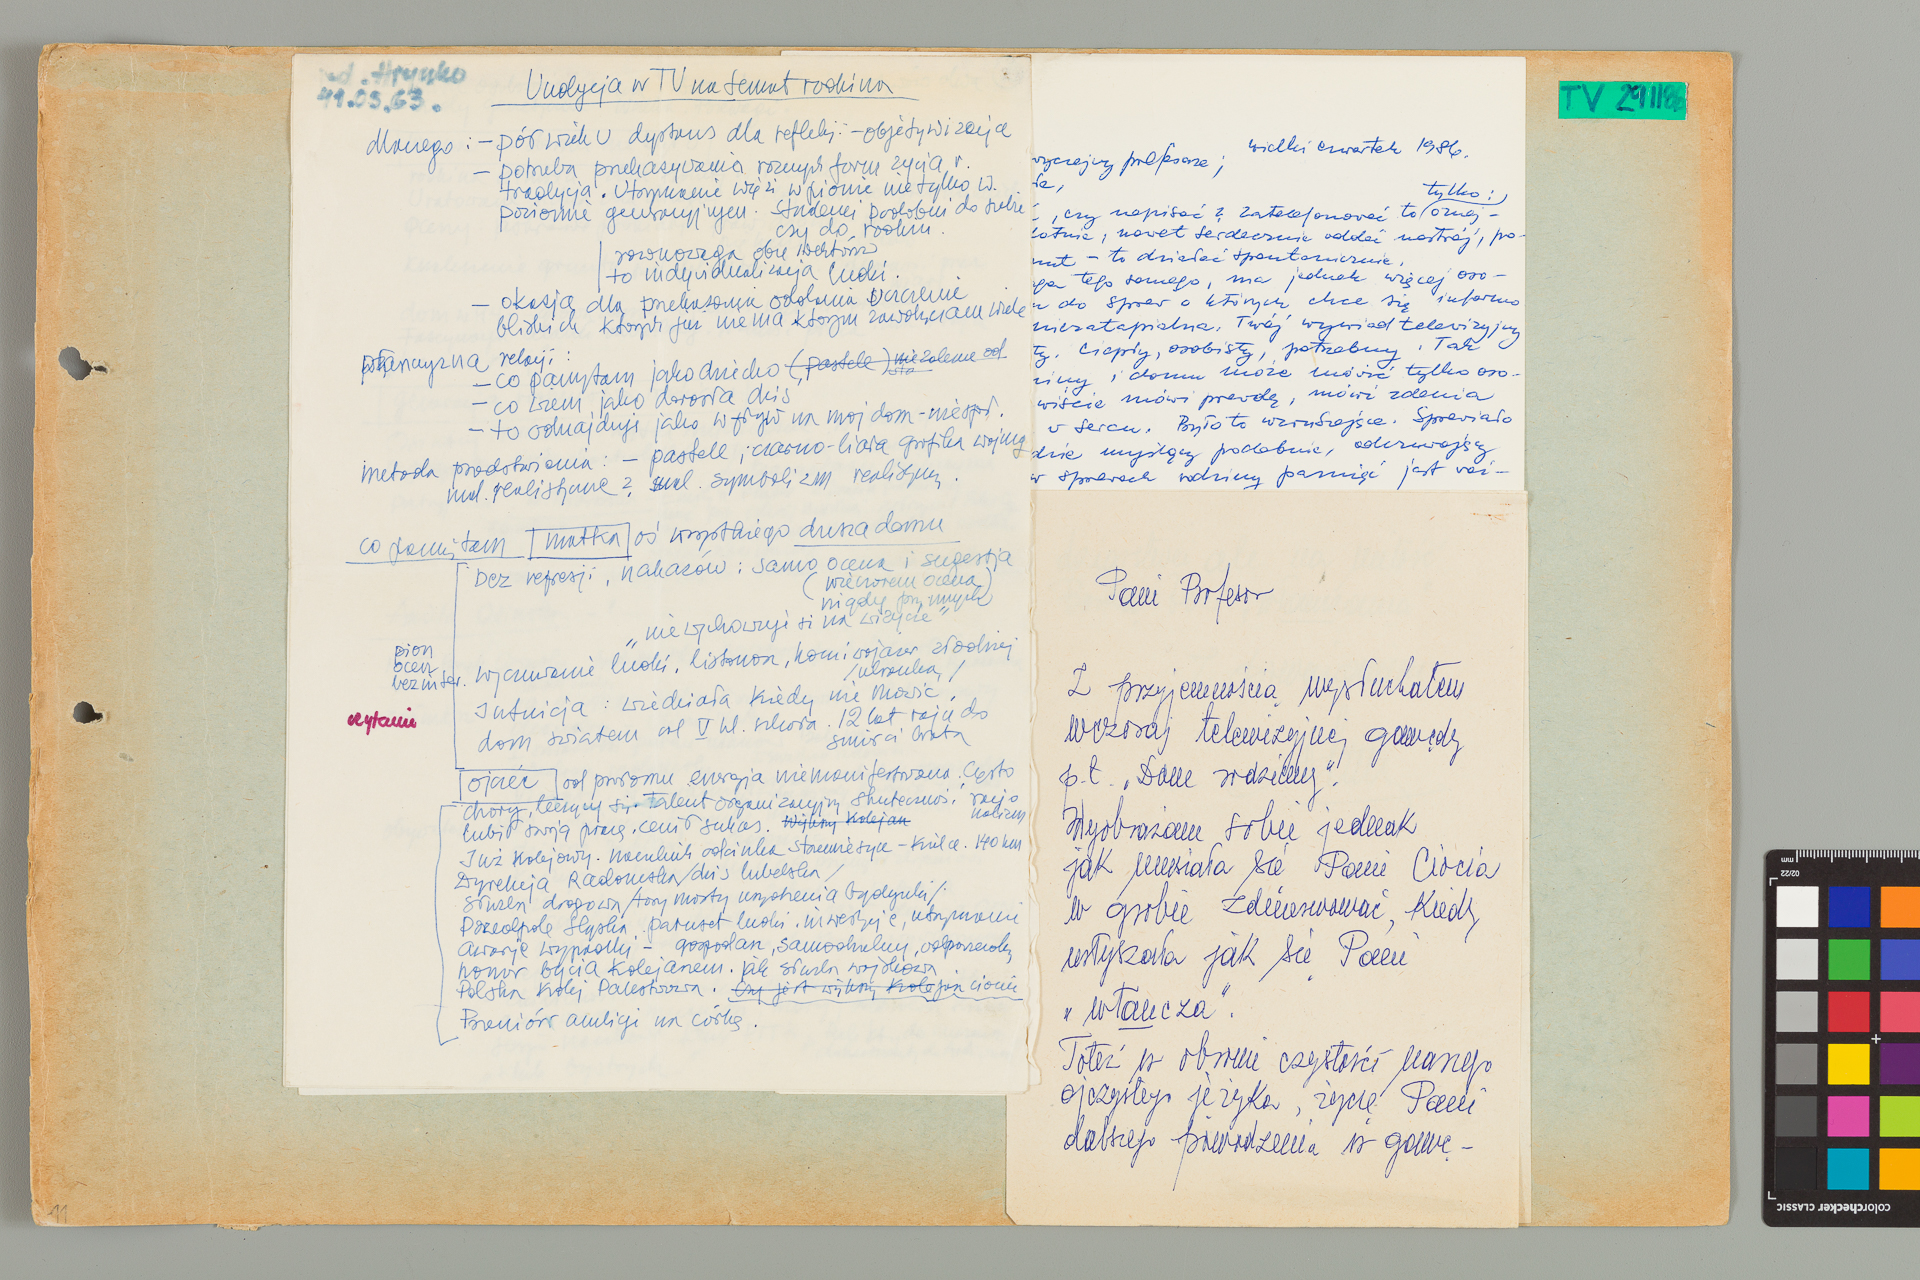 red. Hrynko
41.03.63.
Audycja w TV na temat rodzina
dlaczego : – pół wieku dystans dla refleksji – objektywizacja
– potrzeba przekazywania różnych form życia r.
tradycja. Utrzymanie więzi w pionie nie tylko w
poziomie generacyjnym. Studenci podobni do siebie
czy do rodzin.
równowaga obu wektorów
to indywidualizacja ludzi.
– okazja dla przekazania oddania
bliskich których już nie ma którym zawdzięczam wiele
płaszczyzna relacji :
– co pamiętam jako dziecko (pastele) niezależnie od
– co wiem jako dorosła dziś
– to odnajduję jako wpływ na mój dom – nieopr.
metoda przedstawienia : – pastele ; czarno-biała grafika wojny
mal. realistyczne z mal. symbolizm realistyczny.
co pamiętam matka oś wszystkiego dusza domu
bez represji, nakazów : samoocena i sugestia
(wieczorem ocena)
nigdy przy innych
„nie wychowuje się na wizycie”
pion
ocen
bezinter.
wyczuwanie ludzi, listonosz, komiwojażer złodziej
czytanie
Intuicja : wiedziała kiedy nie mówić,
dom światem od V kl. szkoła. 12 lat raju do
śmierci brata
ojciec od poziomu energia niemanifestowana. Często
chory, leczący się. Talent organizacyjny skuteczność racjo
nalizm
lubił swoją pracę, cenił sukces. Wybitny Kolejarz
Inż kolejowy. naczelnik odcinka Skamieszyce – Kielce. 140 km
Dyrekcja Radomska/dziś lubelska/
Służba drogowa/tory mosty urządzenia budynki/.
Przedpole Śląska. paruset ludzi. inwestycje, utrzymanie
awarje wypadki – gospodarz, samodzielny, odpowiedz
honor bycia Kolejarzem. jak służba wojskowa
Polska Kolej Państwowa. Czy jest wybitny Kolejarz
Przeniósł ambicje na córkę.
TV 29 III 86
wielki czwartek 1986.
profesorze ;
tylko :
, czy napisać z zatelefonować to
nawet serdecznie oddać nastrój, po-
– to działać spontanicznie.
tego samego, ma jednak więcej oso-
do spraw o których chce się informo
niezatapialna. Twój wywiad telewizyjny
Ciepły, osobisty, potrzebny. Tak
i domu może mówić tylko oso-
mówi prawdę, mówi zdania
w sercu. Było to wzruszające. Sprawiało
myślący podobnie, odczuwający
w sprawach rodziny pamięć jest waż-
Pani Profesor
Z przyjemnością wysłuchałem
wczoraj telewizyjnej gawędy
p.t. „Dom rodzinny”.
Wyobrażam sobie jednak
jak musiała się Pani Ciocia
w grobie zdenerwować, kiedy
usłyszała jak się Pani
„wtańcza”.
Toteż w obronie czystości naszego
ojczystego języka, życzę Pani
dalszego powodzenia w gawę-
11
mm
02/22
colorchecker CLASSIC